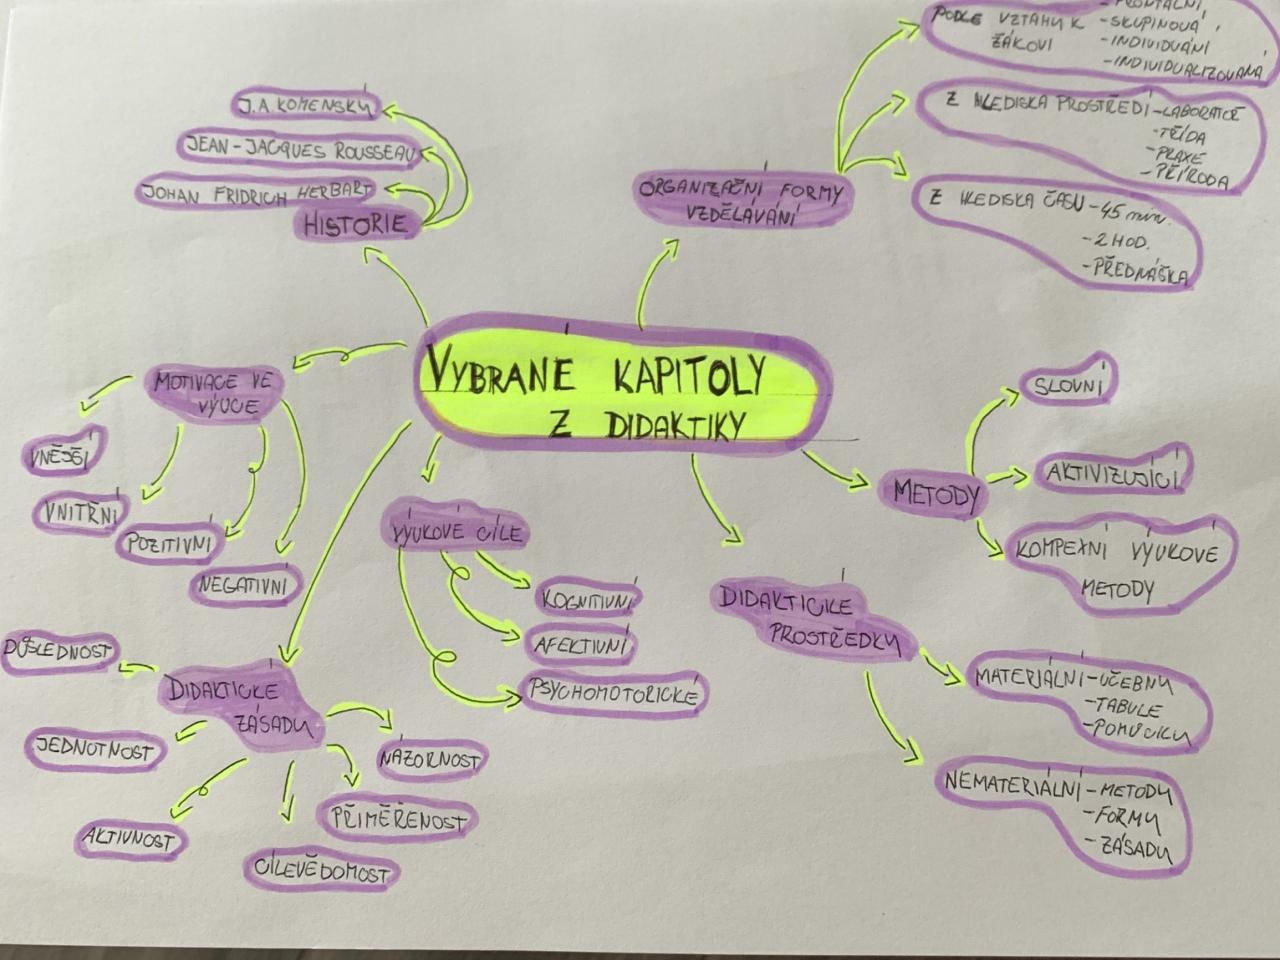 VYBRANÉ KAPITOLY
Z DIDAKTIKY
HISTORIE
J.A.KOMENSKÝ
JEAN-JACQUES ROUSSEAU
JOHAN FRIDRICH HERBART
ORGANIZAČNÍ FORMY
VZDĚLÁVÁNÍ
PODLE VZTAHU K
ŽÁKOVI
- FRONTÁLNÍ
- SKUPINOVÁ
- INDIVIDUÁNÍ
- INDIVIDUALIZOVANÁ
Z HLEDISKA PROSTŘEDÍ - LABORATOŘ
- TŘÍDA
- PRAXE
- PŘÍRODA
Z HLEDISKA ČASU - 45 min.
- 2 HOD.
- PŘEDNÁŠKA
METODY
SLOVNÍ
AKTIVIZUJÍCÍ
KOMPEXNÍ VÝUKOVÉ
METODY
DIDAKTICKÉ
PROSTŘEDKY
MATERIÁLNÍ - UČEBNY
- TABULE
- POMŮCKY
NEMATERIÁLNÍ - METODY
- FORMY
- ZÁSADY
VÝUKOVÉ CÍLE
KOGNITIVNÍ
AFEKTIVNÍ
PSYCHOMOTORICKÉ
MOTIVACE VE
VÝUCE
VNĚJŠÍ
VNITŘNÍ
POZITIVNÍ
NEGATIVNÍ
DIDAKTICKÉ
ZÁSADY
DŮSLEDNOST
JEDNOTNOST
AKTIVNOST
CÍLEVĚDOMOST
PŘIMĚŘENOST
NÁZORNOST